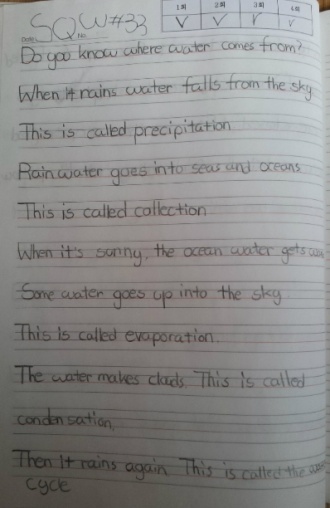 SQW#33
1회 2회 3회 4회
Do you know where water comes from?
When it rains water falls from the sky
This is called precipitation
Rain water goes into seas and oceans
This is called collection
When it's sunny, the ocean water gets
Some water goes up into the sky
This is called evaporation.
The water makes clads. This is called
condensation.
Then it rains again This is called the
cycle